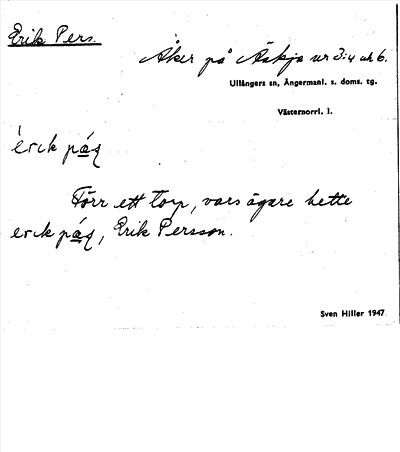 Erik Pers.
Åker på Äskja nr 3:4 och 6.
Ullångers sn, Ångermanl. s. doms. tg.
Västernorrl. l.
èrck páʂ
Förr ett torp, vars ägare hette
erck páʂ, Erik Persson.
Sven Hiller 1947